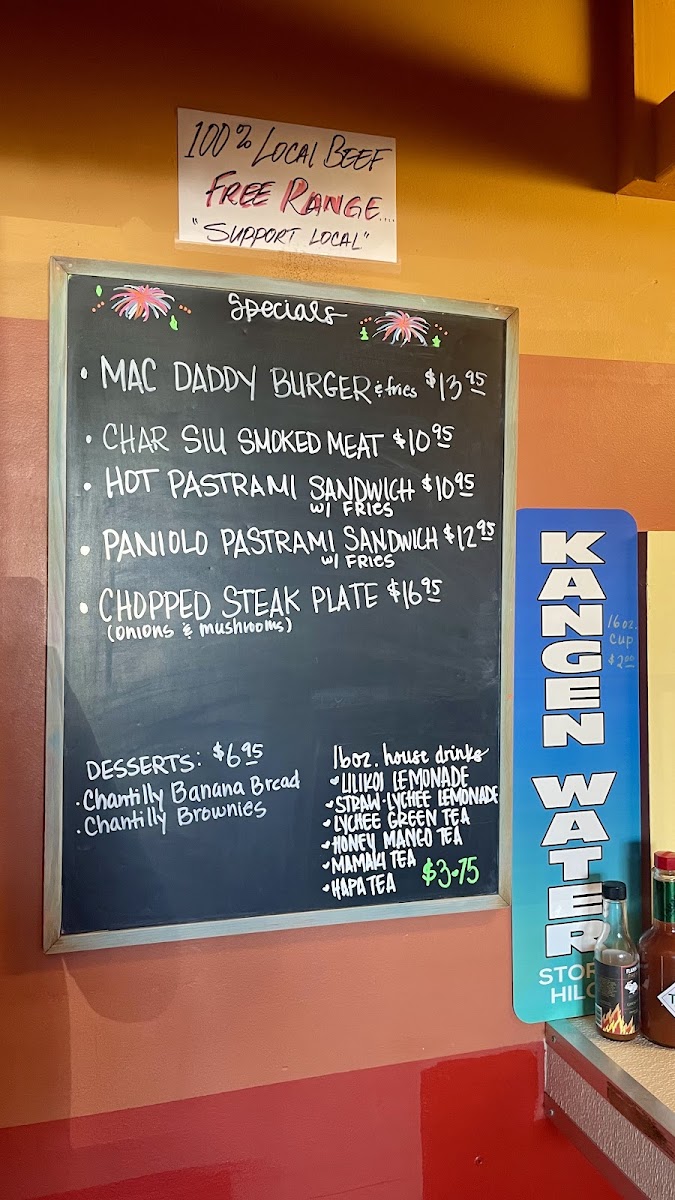 100% LOCAL BEEF
FREE RANGE....
"SUPPORT LOCAL"
Specials
• MAC DADDY BURGER & fries $13 95
• CHAR SIU SMOKED MEAT $10 95
• HOT PASTRAMI SANDWICH $10 95
w/ FRIES
• PANIOLO PASTRAMI SANDWICH $12 95
w/ FRIES
• CHOPPED STEAK PLATE $16 95
(onions & mushrooms)
DESSERTS: $6 95
• Chantilly Banana Bread
• Chantilly Brownies
16oz. house drinks
LILIKOI LEMONADE
STRAW-LYCHEE LEMONADE
LYCHEE GREEN TEA
HONEY MANGO TEA
MAMAKI TEA
HAPA TEA $3.75
KANGEN WATER
16 oz.
cup
$2 00